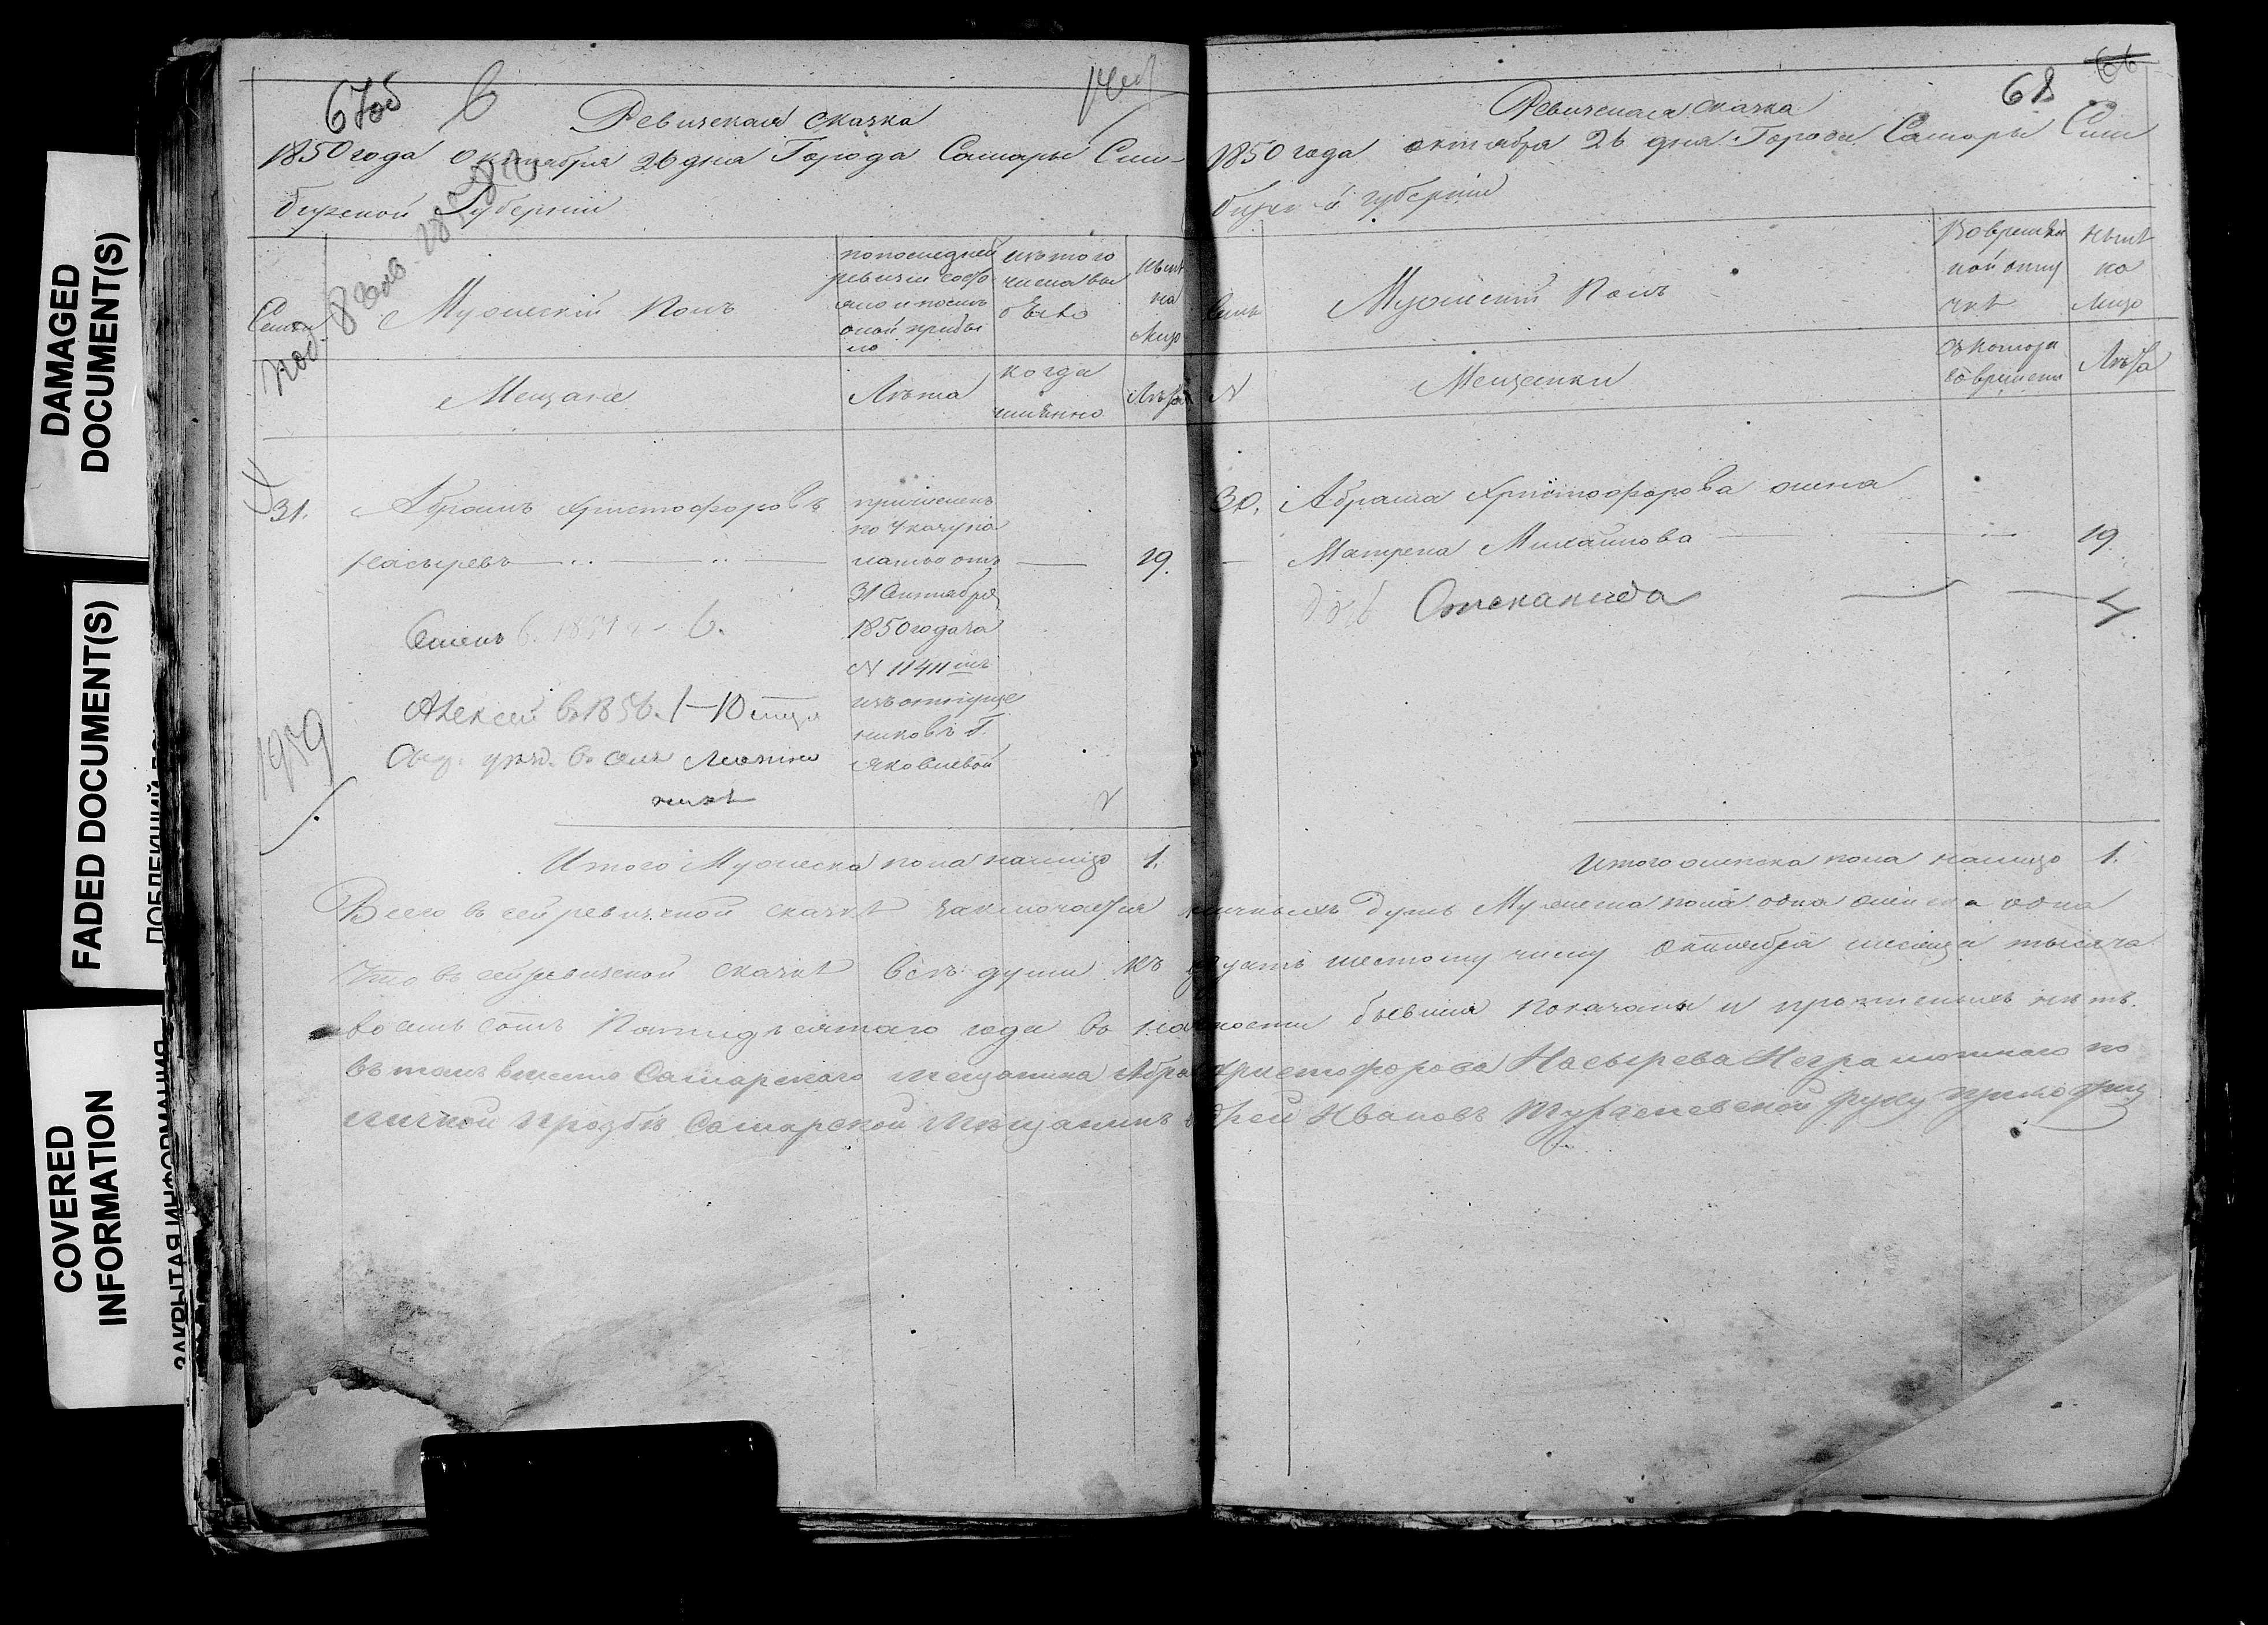 DAMAGED
DOCUMENT(S)
FADED DOCUMENT(S)
COVERED
INFORMATION
ЗАКРЫТАЯ ИНФОРМАЦИЯ
67об
Ревизская сказка
1850 года октября 26 дня Города Самары Сим-
бирской Губернии
Мужескій Полъ
по последней
ревизіи состо
яло и после
оной прибы
ло
изъ того
числа вы
было
ныне
на
лицо
Мещане
Лета
когда
именно
Лета
31.
Абрамъ Христофоровъ
Насыревъ
причисленъ
по Указу Ка
31 Октября
1850 года за
N 11411
Яковлевой
29.
Семенъ
Алексей в 1856.
1959
Итого Мужеска пола налицо 1.
68
66
Ревизская сказка
1850 года октября 26 дня Города Самары Сим
бирской губерніи
Мужескій Полъ
Во времен
ной отлу
чке
ныне
на
лицо
N
Мещанки
съ котора
го времени
Лета
30. Абрама Христофорова жена
Матрена Михайлова 19.
Степанида
Итого женска пола налицо 1.
Всего въ сей ревизской сказке заключается наличныхъ душъ Мужеска пола одна женска одна
Что въ сей ревизской сказке все души къ двадцать шестому числу октября месяца тысяча
восемь сотъ Пятидесятаго года въ наличности бывшія показаны и прописныхъ нетъ.
въ томъ вместо Самарскаго мещанина Абрама Христофорова Насырева Неграмотнаго по
личной прозбе Самарской мещанинъ Андрей Ивановъ руку приложилъ